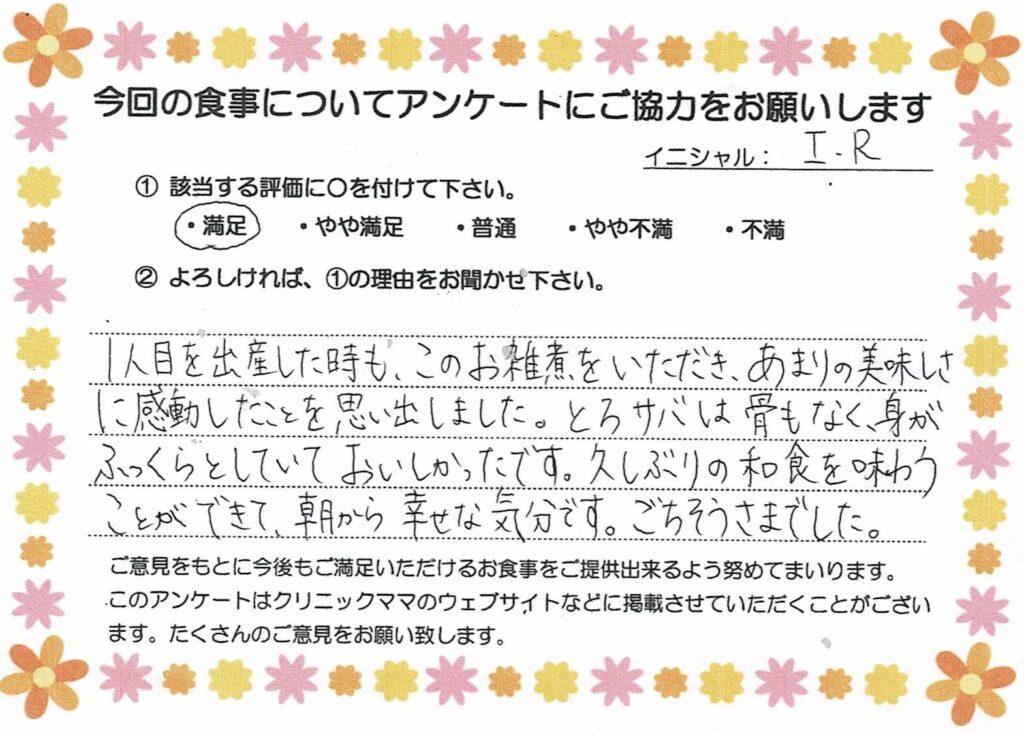 今回の食事についてアンケートにご協力をお願いします
イニシャル： I.R
① 該当する評価に○を付けて下さい。
・満足 ・やや満足 ・普通 ・やや不満 ・不満
② よろしければ、①の理由をお聞かせ下さい。
1人目を出産した時も、このお雑煮をいただき、あまりの美味しさ
に感動したことを思い出しました。とろサバは骨もなく、身が
ふっくらとしていておいしかったです。久しぶりの和食を味わう
ことができて、朝から幸せな気分です。ごちそうさまでした。
ご意見をもとに今後もご満足いただけるお食事をご提供出来るよう努めてまいります。
このアンケートはクリニックママのウェブサイトなどに掲載させていただくことがござい
ます。たくさんのご意見をお願い致します。